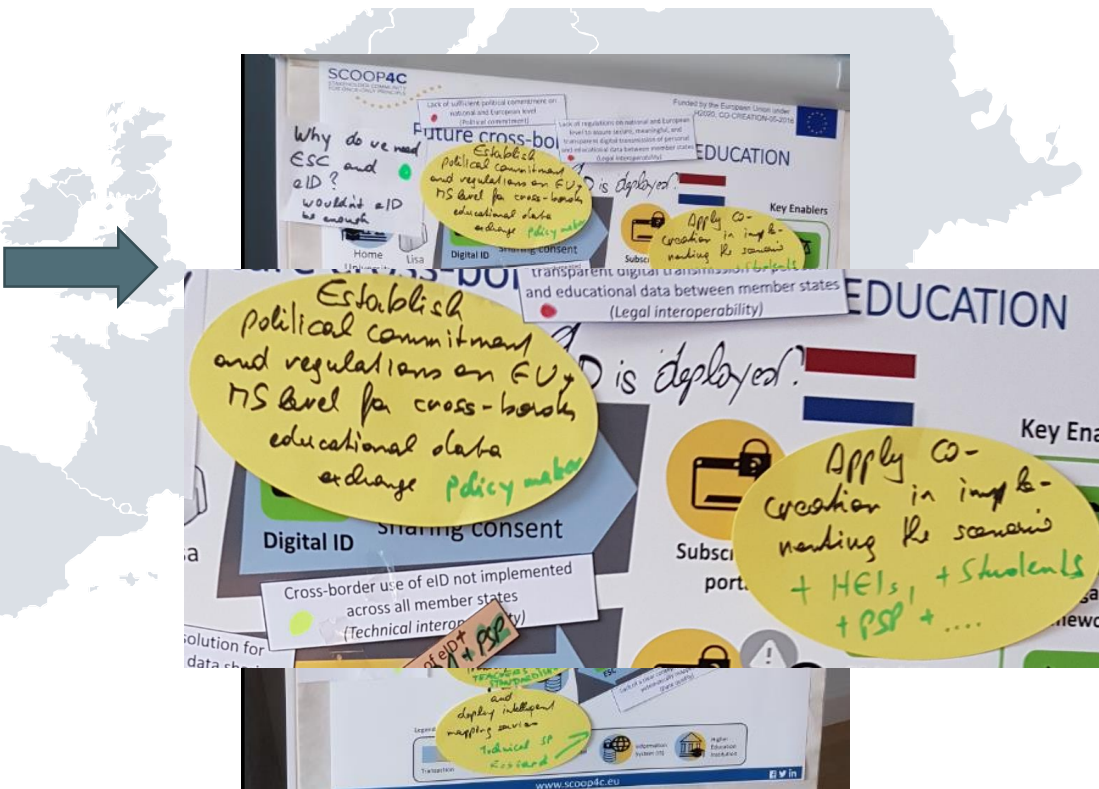 SCOOP4C
STAKEHOLDER COMMUNITY
FOR ONCE-ONLY PRINCIPLE
Lack of sufficient political commitment on
national and European level
(Political commitment)
Funded by the European Union under
H2020, CO-CREATION-05-2016
Lack of regulations on national and European
level to assure secure, meaningful, and
transparent digital transmission of personal
and educational data between member states
(Legal interoperability)
Future cross-bor
EDUCATION
Why do we need
ESC and
eID?
wouldn't eID
be enough
Establish
political commitment
and regulations on EU +
MS level for cross-border
educational data
exchange policy maker
D is deployed?
Key Enablers
Apply co-
creation in imple-
menting the scenario
+ Students
Home
University
Lisa
Digital ID
sharing consent
Subsc
cross-bor
transparent digital transmission
and educational data between member states
(Legal interoperability)
EDUCATION
Establish
political commitment
and regulations on EU +
MS level for cross-border
educational data
exchange policy maker
D is deployed?
Key Ena
Apply co-
creation in imple-
menting the scenario
+ HEIs, + Students
+ PSP + ....
sa
Digital ID
sharing consent
Subsc
port
Cross-border use of eID not implemented
across all member states
(Technical interop ty)
of eID+
+ PSP
olution for
data sh
TEACHERS
STANDARDISE
ESC
and
deploy intelligent
mapping services
Technical SP
Legend
Transaction
Information
System (IS)
Higher
Education
Institution
www.scoop4c.eu